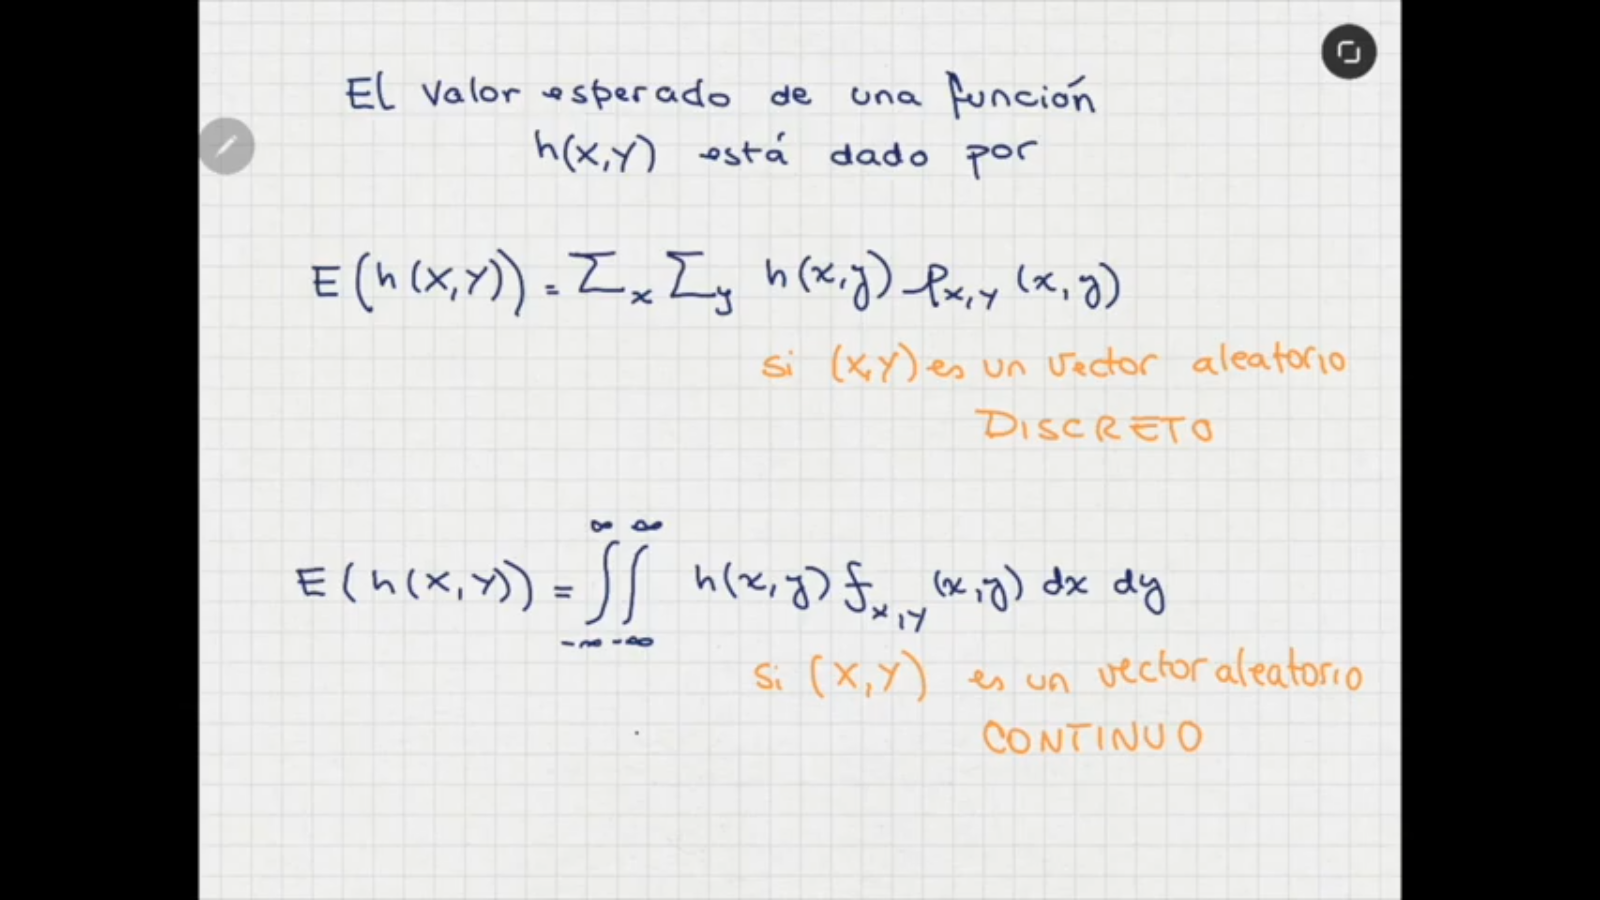 El valor esperado de una función
h(X,Y) está dado por
E(h(X,Y)) = Σx Σy h(x,y) pX,Y (x,y)
si (X,Y) es un vector aleatorio
DISCRETO
∞ ∞
E(h(X,Y)) = ∫∫ h(x,y) fX,Y (x,y) dx dy
-∞ -∞
si (X,Y) es un vector aleatorio
CONTINUO